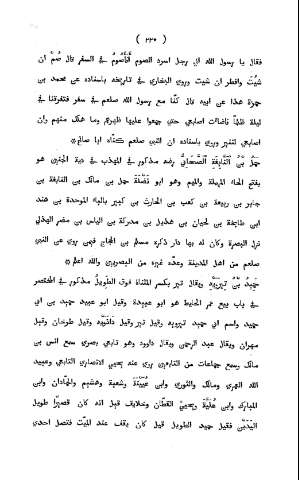 ( ٢٢٠ )
فقال يا رسول الله اني رجل اسرد الصوم فأصوم في السفر قال صُم ان
شئت وافطر ان شئت وروى البخاري في تاريخه باسناده عن محمد بن
حمزة هذا عن ابيه قال كنا مع رسول الله صلعم في سفر فتفرقنا في
ليلة ظلماء فاضاءت اصابعي حتى جمعوا عليها ظهرهم وما هلك منهم وان
اصابعي لتنير وروى باسناده ان النبي صلعم كناه ابا صالح*
حَمَل بن النابغة الصحابي رضه مذكور في المهذب في دية الجنين هو
بفتح الحاء المهملة والميم وهو ابو نضلة حمل بن مالك بن النابغة بن
جابر بن ربيعة بن كعب بن الحارث بن كبير بالباء الموحدة بن هند
ابن طابخة بن لحيان بن هذيل بن مدركة بن الياس بن مضر الهذلي
نزل البصرة وكان له بها دار ذكره مسلم بن الحجاج فيمن روى عن النبي
صلعم من اهل المدينة وعده غيره من البصريين والله اعلم*
حميد بن تيرويه ويقال تير بكسر المثناة فوق الطويل مذكور في المختصر
في باب بيع ثمر الحائط هو ابو عبيدة وقيل ابو عبيد حميد بن ابي
حميد واسم ابي حميد تيرويه وقيل تير وقيل داذويه وقيل طرخان وقيل
مهران ويقال عبد الرحمن ويقال داوود وهو تابعي بصري سمع انس بن
مالك وسمع جماعات من التابعين روى عنه يحيى الانصاري التابعي وعبيد
الله العمري ومالك والثوري وابن عيينة وشعبة وهشيم والحمادان وابن
المبارك وابن علية ويحيى القطان وخلايق قيل انه كان قصيرا طويل
اليدين فقيل حميد الطويل قيل كان يقف عند الميت فتصل احدى